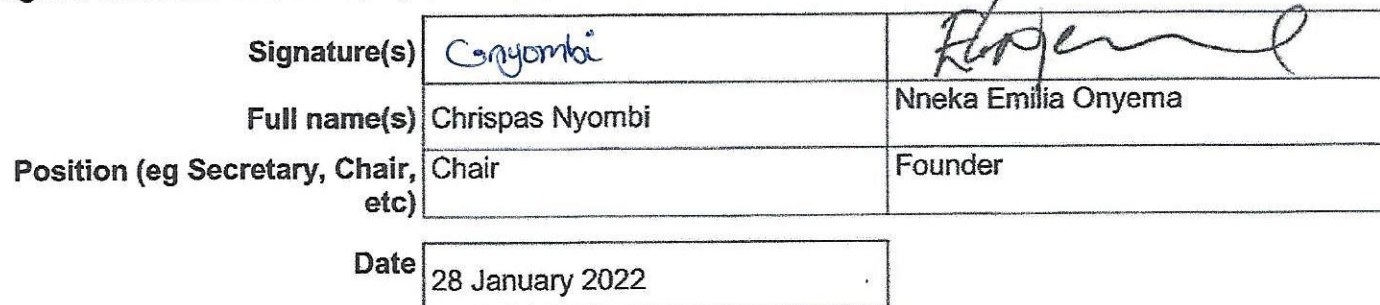 Signature(s) Cnyombi
Full name(s) Chrispas Nyombi Nneka Emilia Onyema
Position (eg Secretary, Chair, etc) Chair Founder
Date 28 January 2022